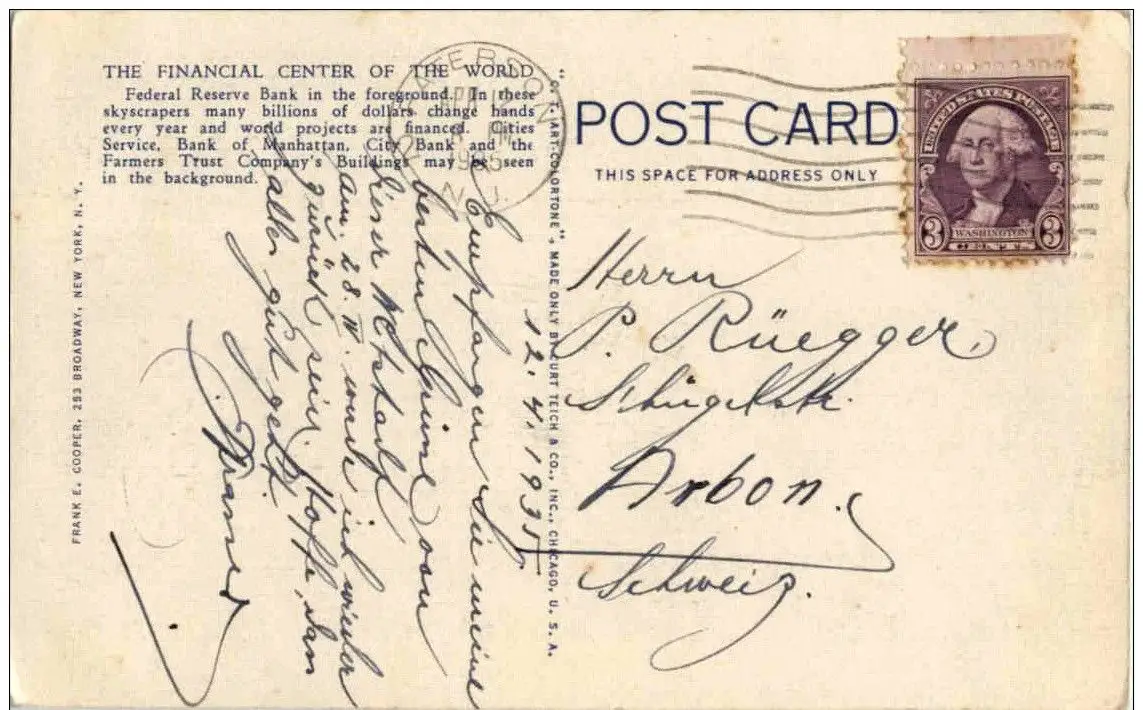 THE FINANCIAL CENTER OF THE WORLD
Federal Reserve Bank in the foreground. In these
skyscrapers many billions of dollars change hands
every year and world projects are financed. Cities
Service, Bank of Manhattan, City Bank and the
Farmers Trust Company's Buildings may be seen
in the background.
POST CARD
THIS SPACE FOR ADDRESS ONLY
UNITED STATES POSTAGE
3 WASHINGTON 3
CENTS
PATERSON
1935
N.J.
12. 4. 1935
Empfangen Sie meine
besten Grüsse von
dieser
am 28. IV. werde ich wieder
zurück sein. Hoffe, dass
alles gut geht.
Herrn
P. Rüegger,
Arbon.
Schweiz.
"C. T. ART-COLORTONE", MADE ONLY BY CURT TEICH & CO., INC., CHICAGO, U. S. A.
FRANK E. COOPER, 253 BROADWAY, NEW YORK, N. Y.